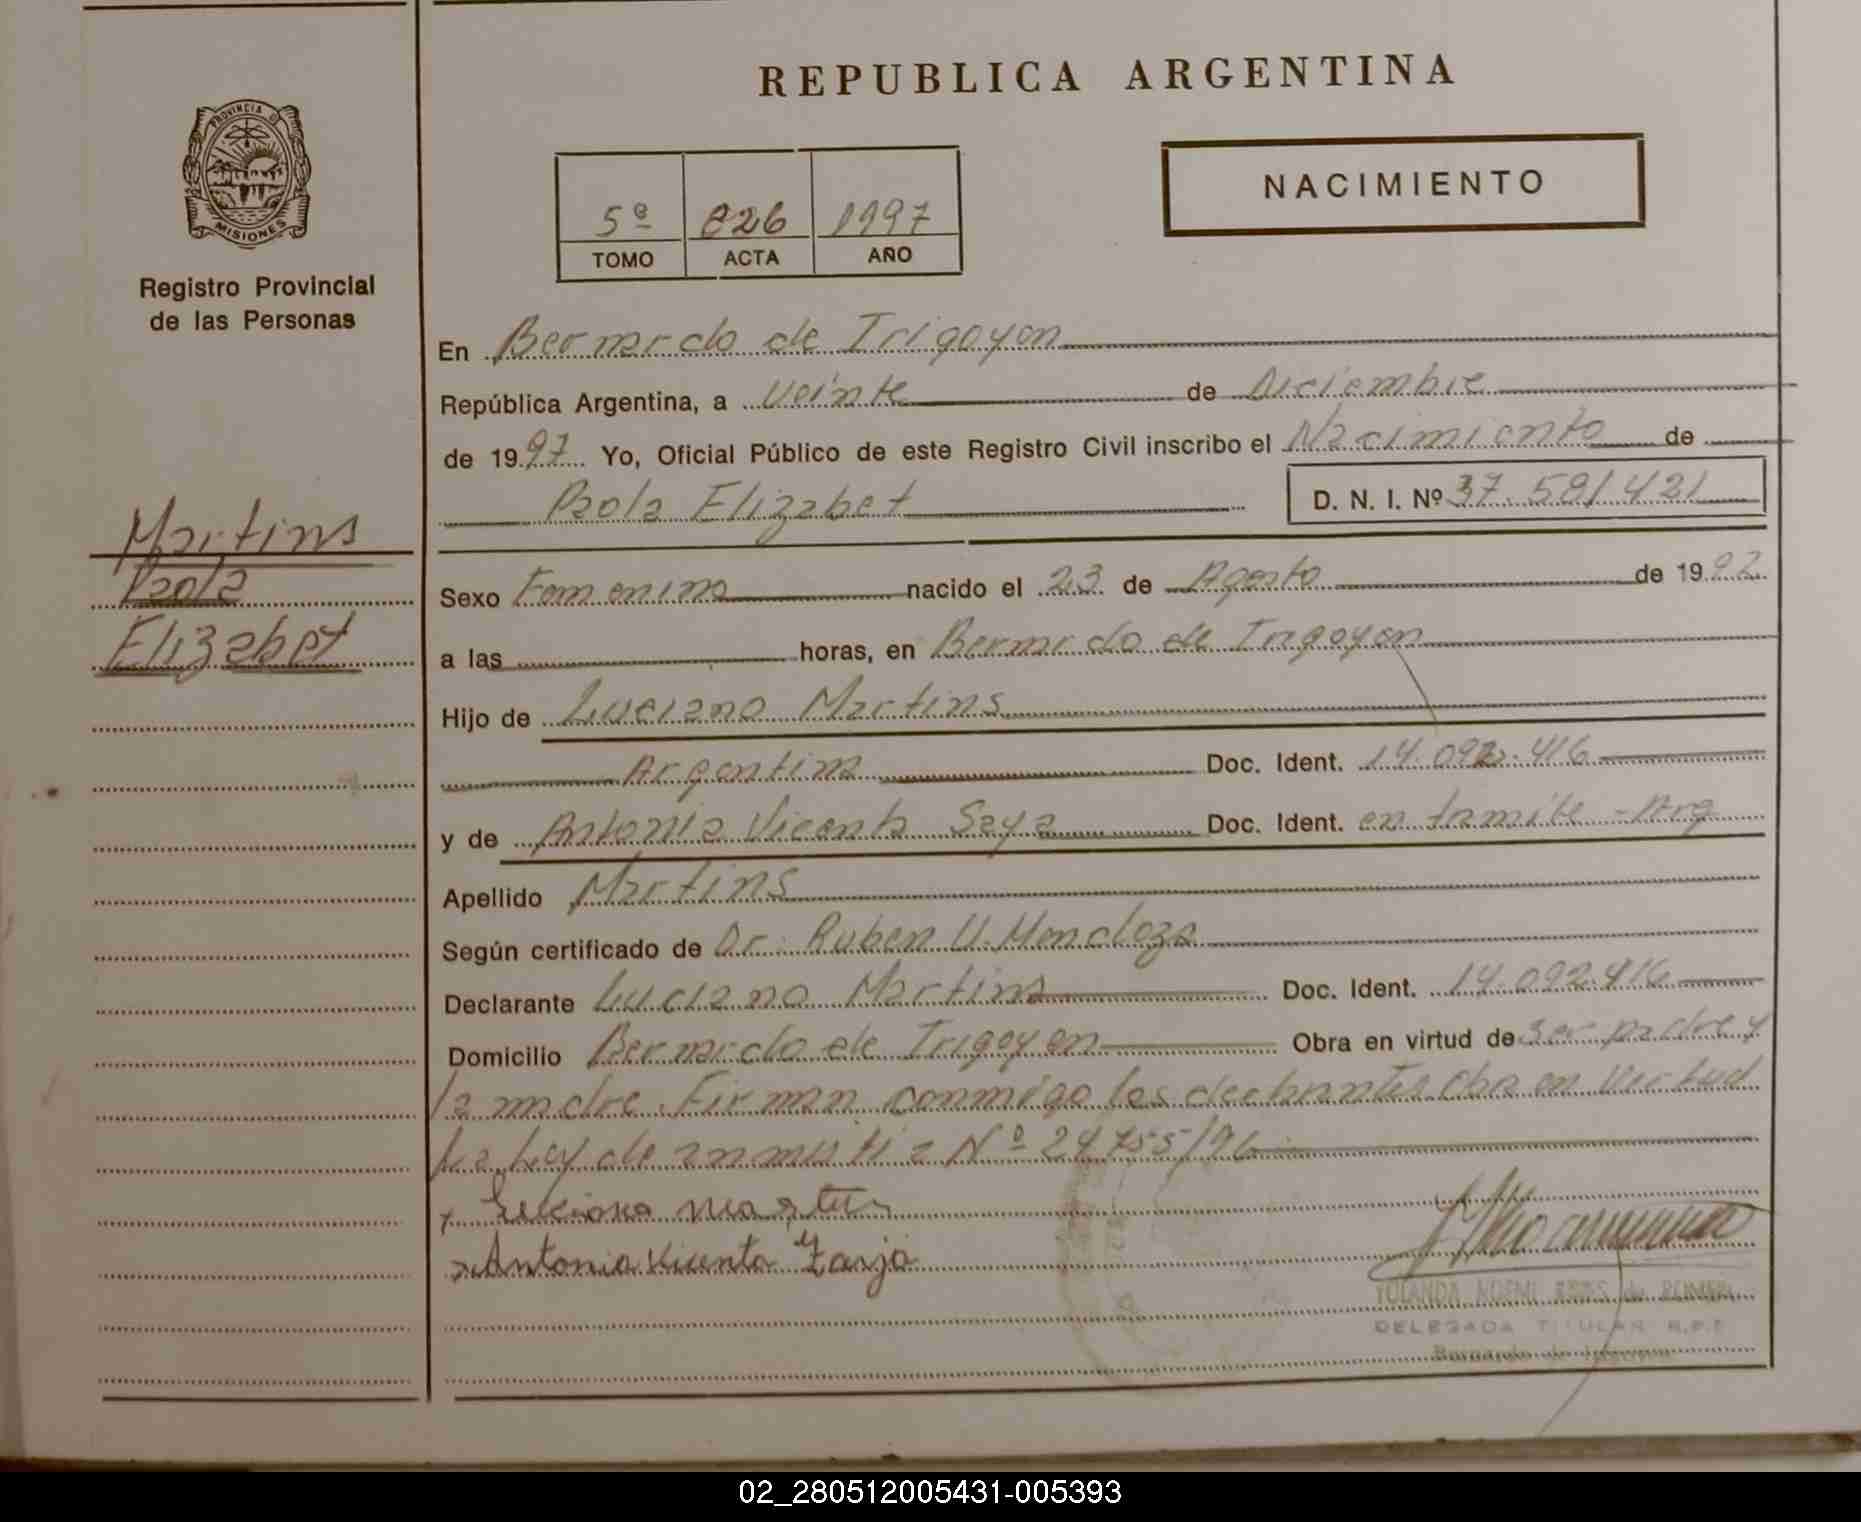 REPUBLICA ARGENTINA
PROVINCIA D
MISIONES
Registro Provincial
de las Personas
NACIMIENTO
5º 826 1997
TOMO ACTA AÑO
En Bernardo de Irigoyen
República Argentina, a Veinte de Diciembre
de 1997 Yo, Oficial Público de este Registro Civil inscribo el Nacimiento de
Paola Elizabet D. N. I. Nº 37.591421
Martins
Paola
Elizabet
Sexo Femenino nacido el 23 de Agosto de 1992
a las horas, en Bernardo de Irigoyen
Hijo de Luciano Martins
Argentina Doc. Ident. 14.092.416
y de Antonia Vicenta Saya Doc. Ident. en tramite - Arg
Apellido Martins
Según certificado de Dr. Ruben U. Mendoza
Declarante Luciano Martins Doc. Ident. 14.092.416
Domicilio Bernardo de Irigoyen Obra en virtud de ser padre y
la madre. Firman conmigo los declarantes Obra en Virtud
La Ley de amnistia Nº 24.755/96
x Luciano Martins
x Antonia Vicenta Zarja
YOLANDA NOEMI de ROMERO
DELEGADA TITULAR R.P.P
Bernardo de Irigoyen
02_280512005431-005393